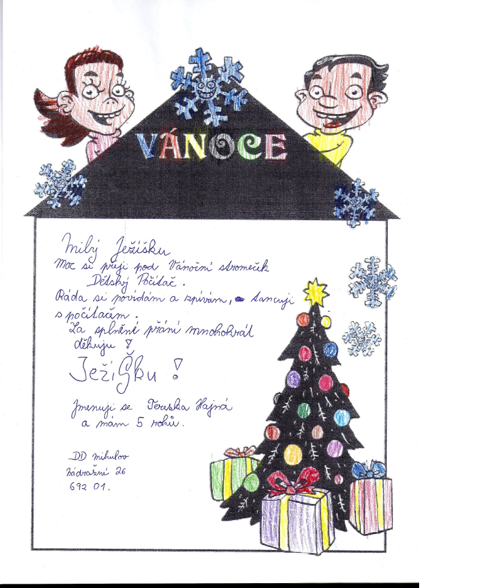 VÁNOCE
Milý Ježíšku
Moc si přeji pod Vánoční stromeček
Dětský Počítač.
Ráda si povídám a spívám, tancuji
s počítačem.
Za splněné přání mnohokrát
děkuju
Ježíšku!
Jmenuji se Teruska Hajná
a mám 5 roků.
DD Mikulov
Nádražní 26
692 01.